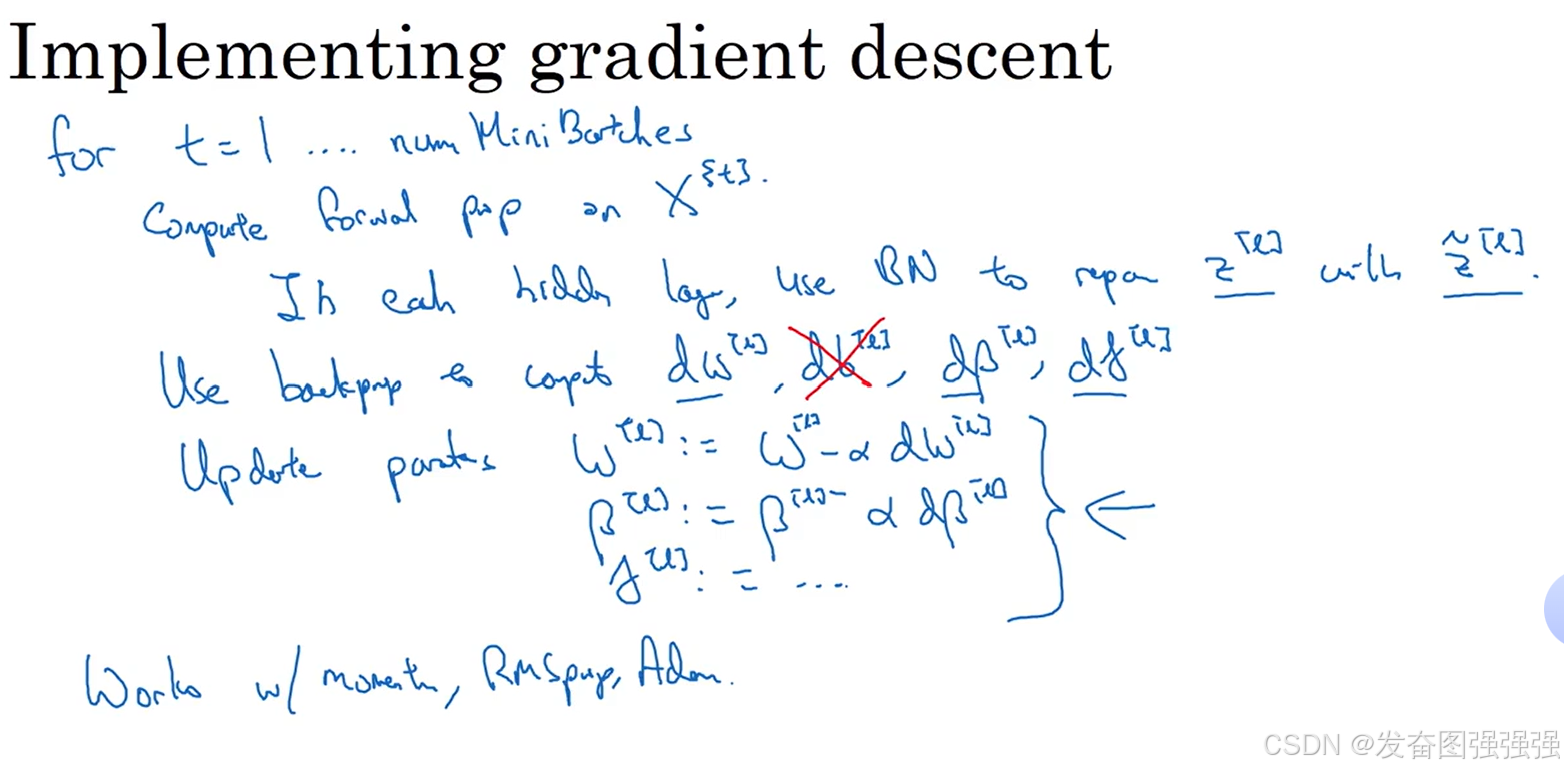 Implementing gradient descent
for t = 1 .... num Mini Batches
Compute forward prop on X^{t}.
In each hidden layer, use BN to repon z^[l] with z̃^[l].
Use backprop to compute dw^[l], db^[l], dβ^[l], dγ^[l]
Update parameters W^[l] := W^[l] - α dw^[l]
β^[l] := β^[l] - α dβ^[l]
γ^[l] := ....
Works w/ momentum, RMSprop, Adam.
CSDN @发奋图强强强